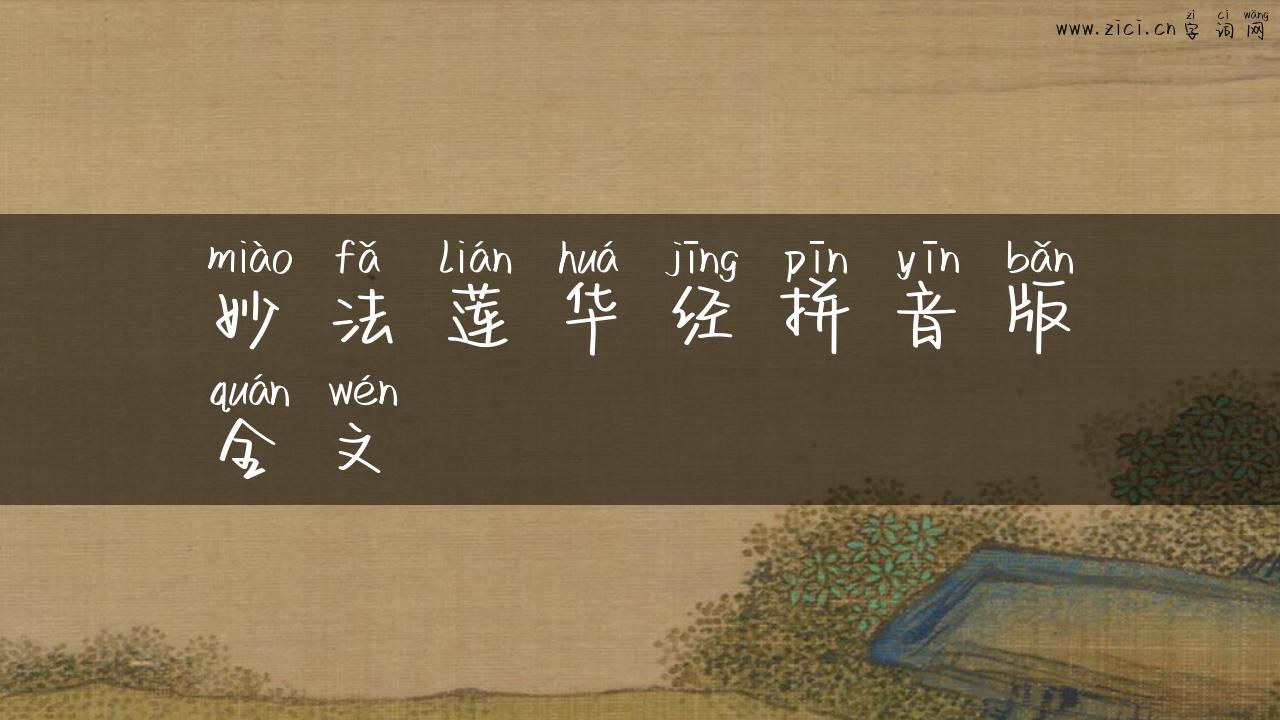 zì cí wǎng
www.zici.cn 字词网
miào fǎ lián huá jīng pīn yīn bǎn
妙法莲华经拼音版
quán wén
全文